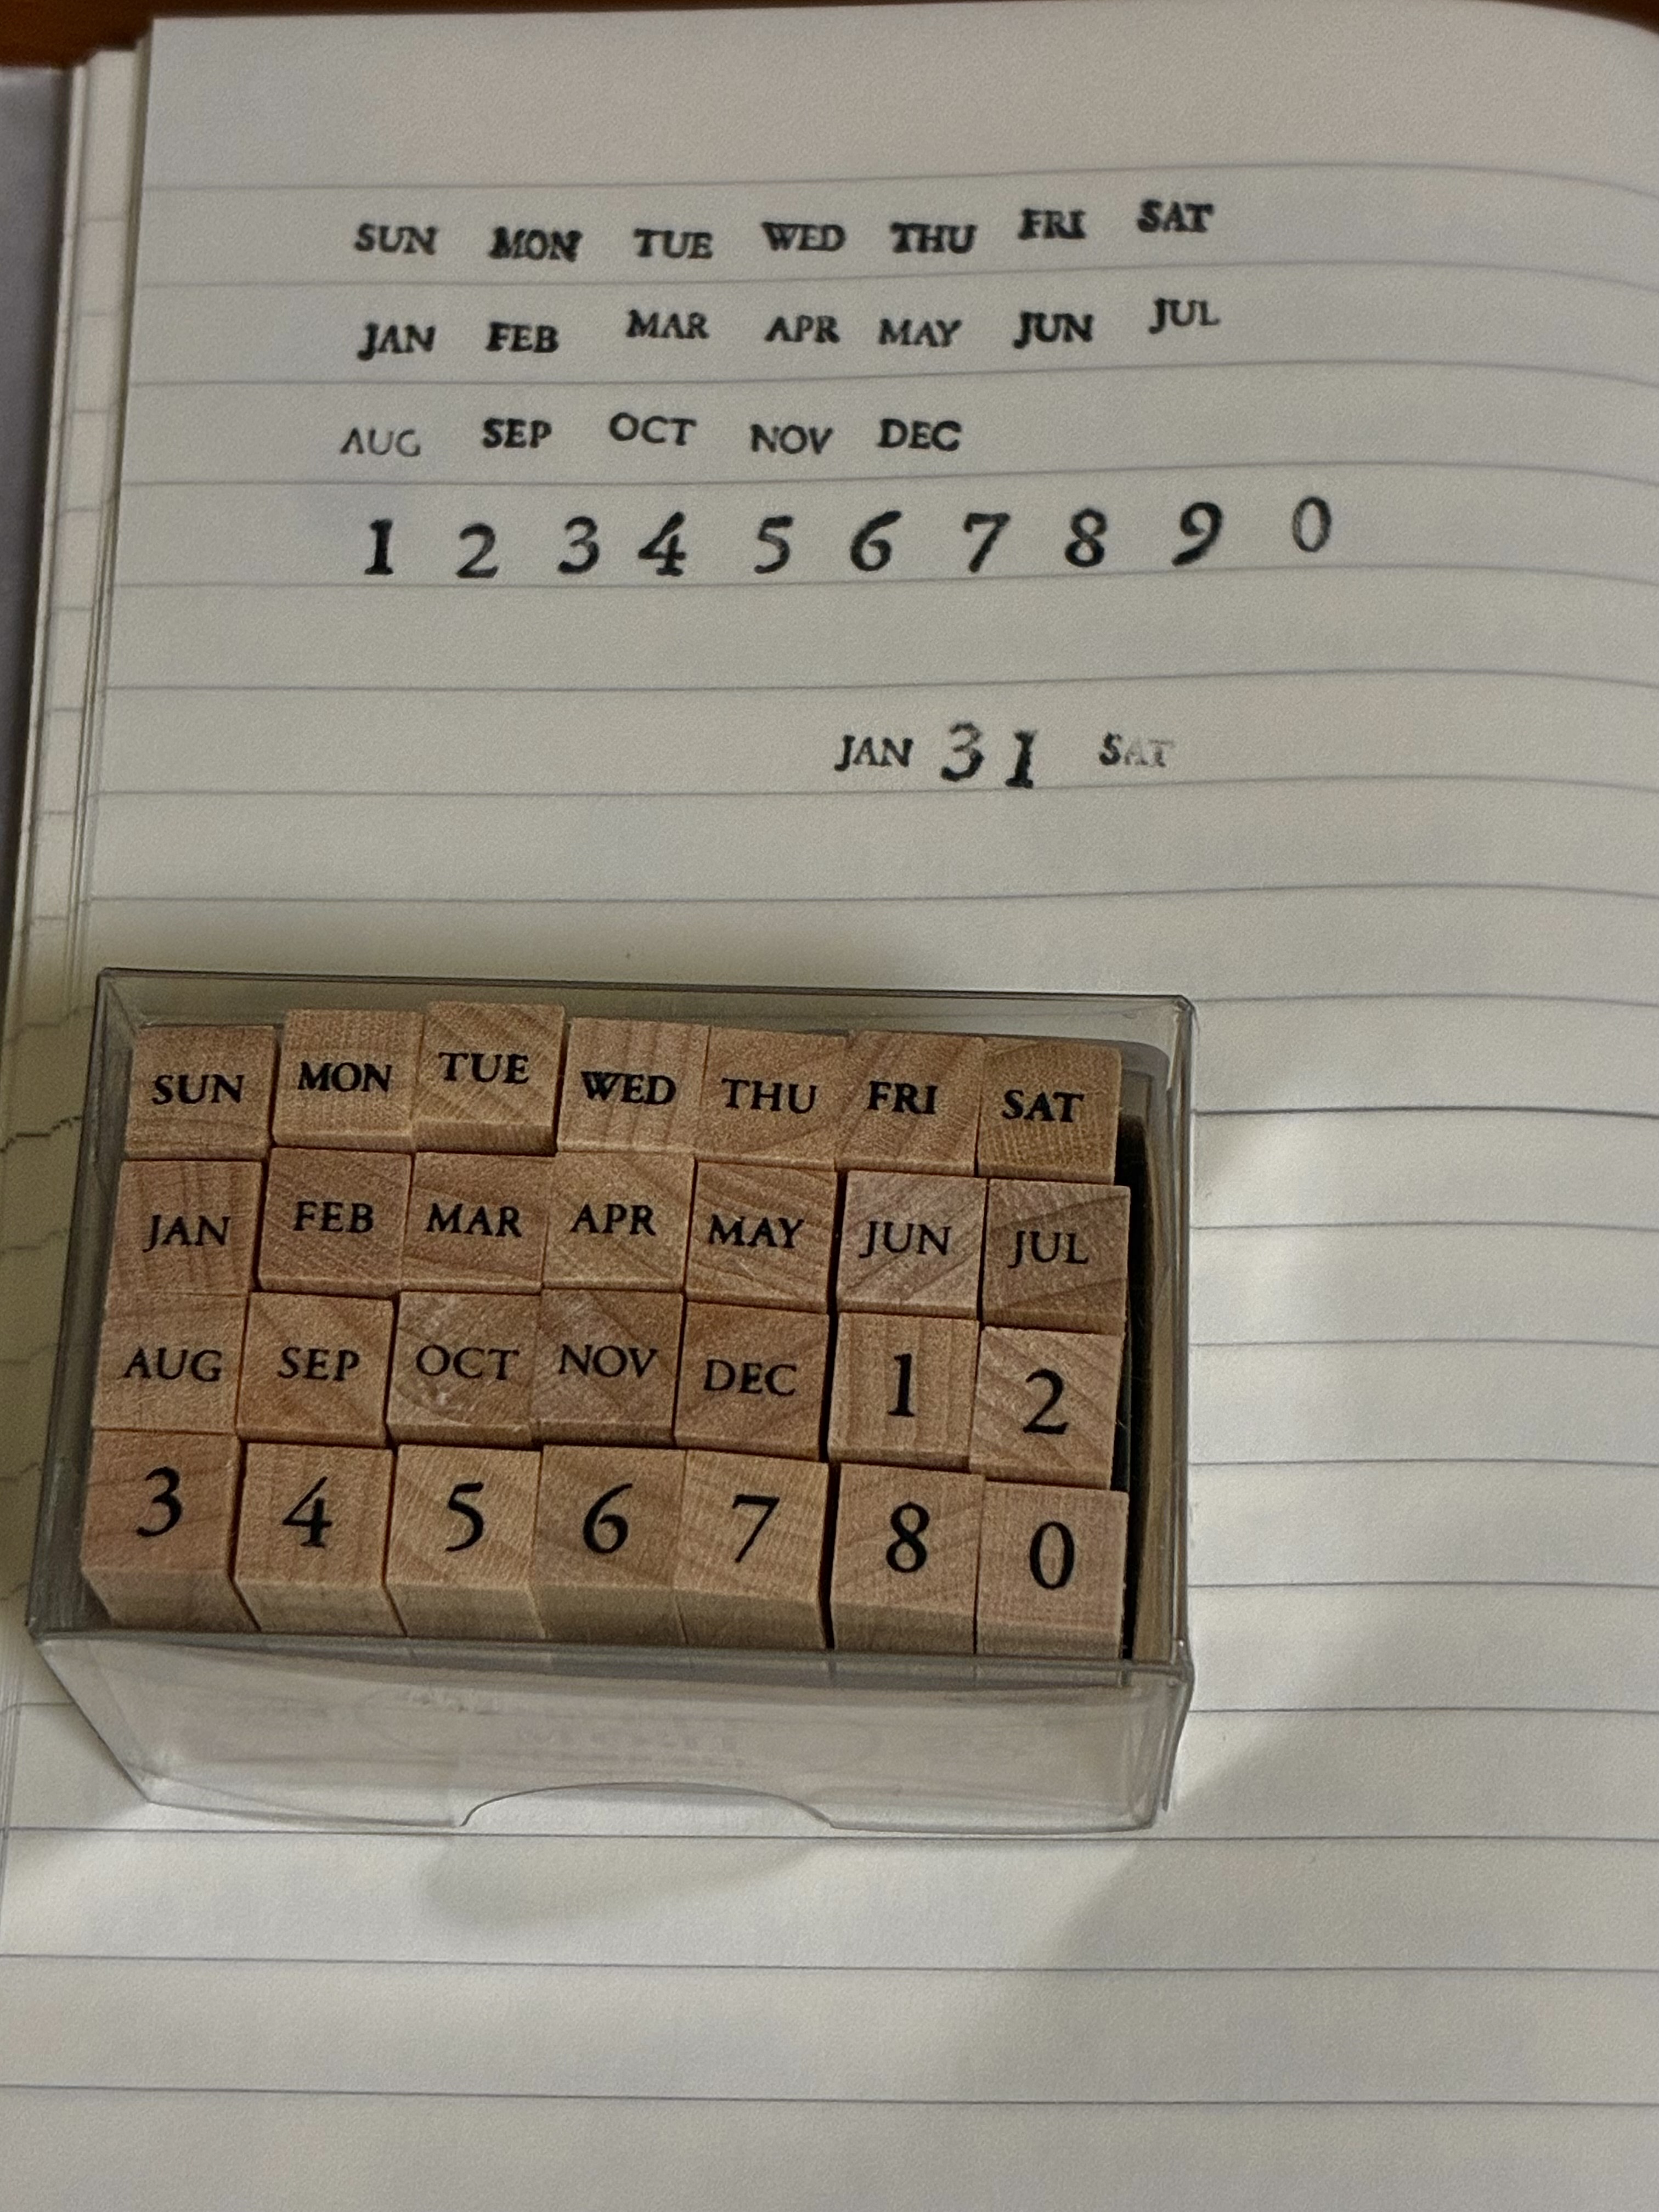 SUN MON TUE WED THU FRI SAT
JAN FEB MAR APR MAY JUN JUL
AUG SEP OCT NOV DEC
1 2 3 4 5 6 7 8 9 0
JAN 31 SAT
SUN MON TUE WED THU FRI SAT
JAN FEB MAR APR MAY JUN JUL
AUG SEP OCT NOV DEC 1 2
3 4 5 6 7 8 0